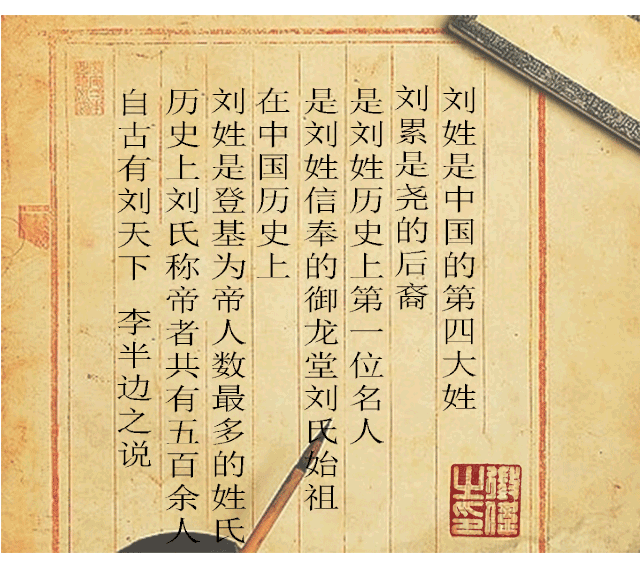 刘姓是中国的第四大姓
刘累是尧的后裔
是刘姓历史上第一位名人
是刘姓信奉的御龙堂刘氏始祖
在中国历史上
刘姓是登基为帝人数最多的姓氏
历史上刘氏称帝者共有五百余人
自古有刘天下 李半边之说